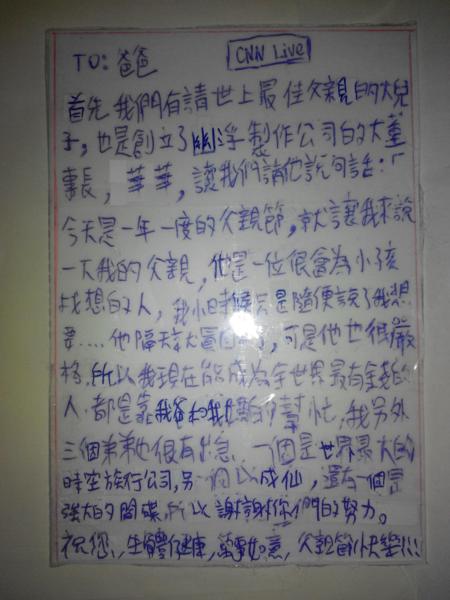 TO:爸爸 CNN Live
首先我們有請世上最佳父親的大兒
子,也是創立了幽浮製作公司的大董
事長,華華,讓我們請他說句話:「
今天是一年一度的父親節,就讓我來說
一下我的父親,他是一位很會為小孩
找想的人,我小時候只是隨便說了我想
要....他隔天就買回,可是他也很嚴
格,所以我現在能成為全世界最有錢的
人,都是靠我爸和我媽的幫忙,我另外
三個弟弟也很有出息,一個是世界最大的
時空旅行公司,另一個以成仙,還有一個是
強大的間諜,所以謝謝你們的努力。
祝您,生體健康,萬事如意,父親節快樂!!!